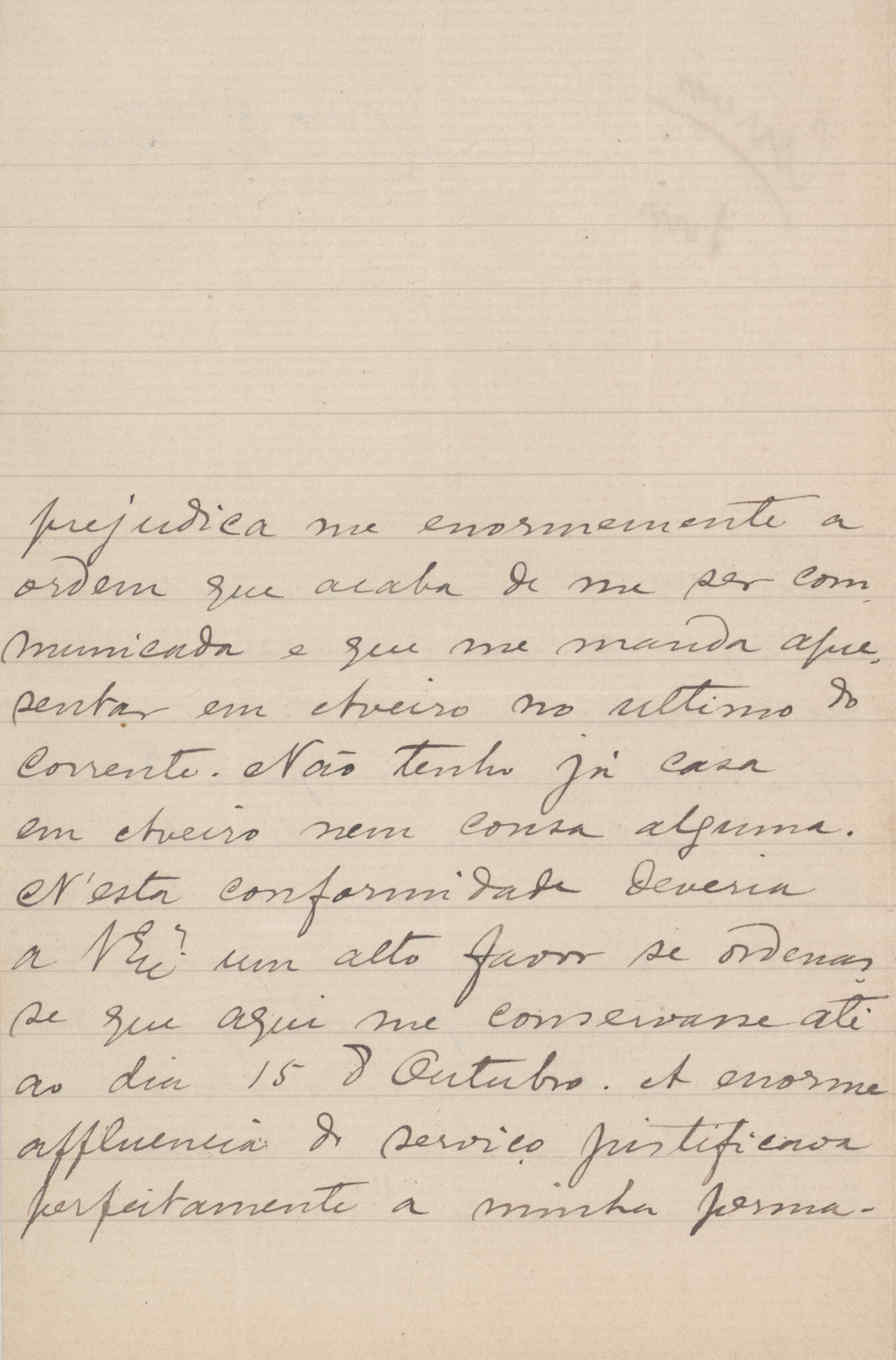 prejudica me enormemente a
ordem que acaba de me ser com
municada e que me manda apre,
sentar em Aveiro no ultimo do
corrente. Não tenho já casa
em Aveiro nem cousa alguma.
N'esta conformidade deveria
a V Ex.ª um alto favor se ordenas
se que aqui me conservasse até
ao dia 15 d Outubro. A enorme
affluencia de serviço justificava
perfeitamente a minha perma-